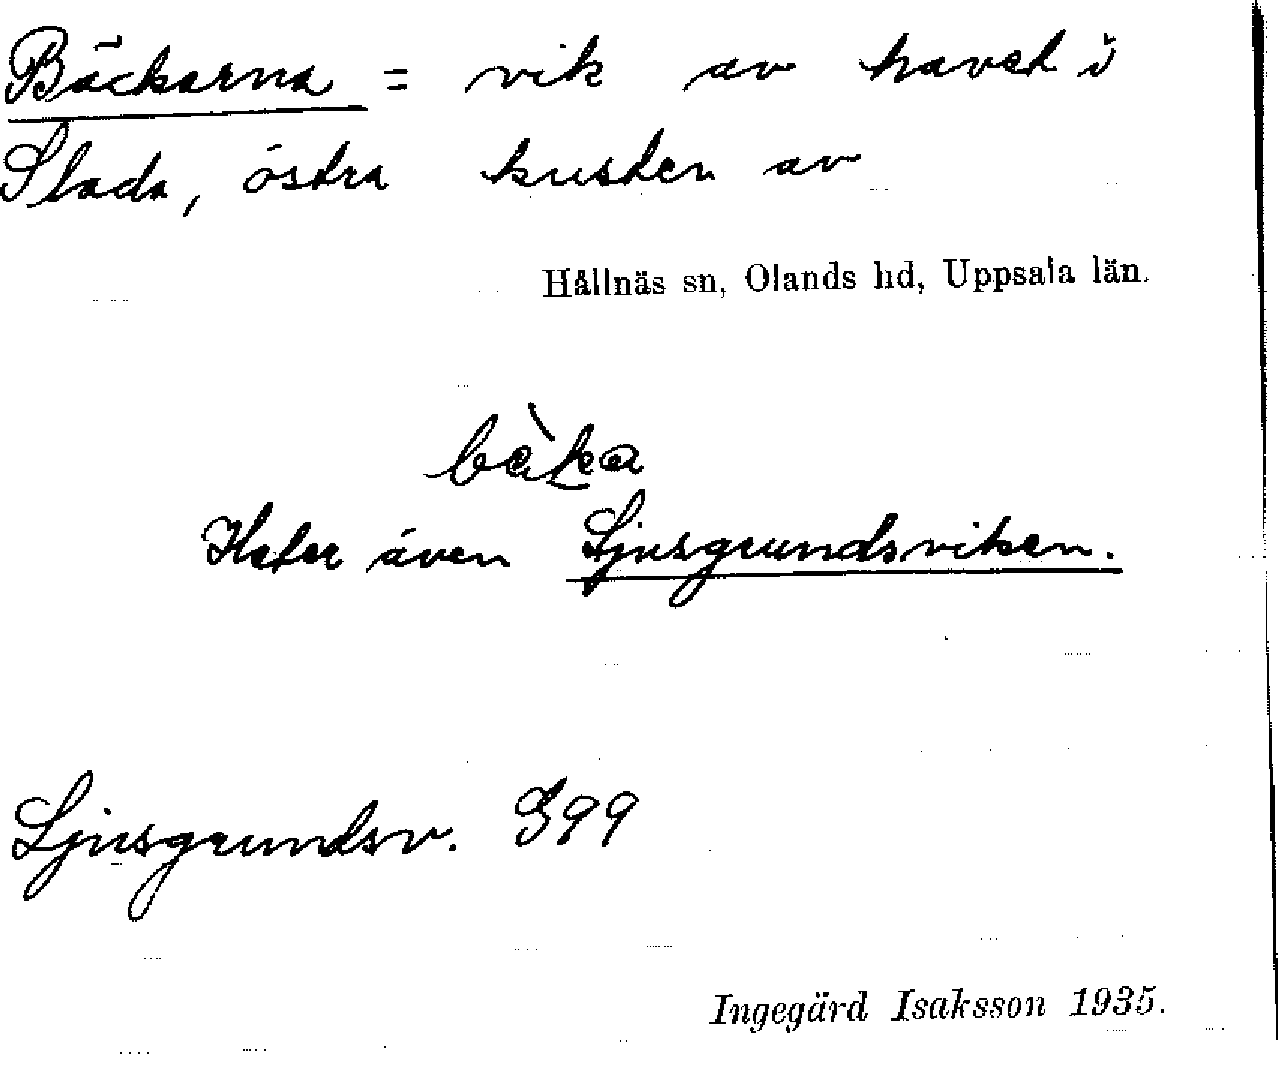 Bäckarna = vik av havet i
Slada, östra kusten av
Hållnäs sn, Olands hd, Uppsala län.
bèka
Heter även Ljusgrundsviken.
Ljusgrundsv. S99
Ingegärd Isaksson 1935.